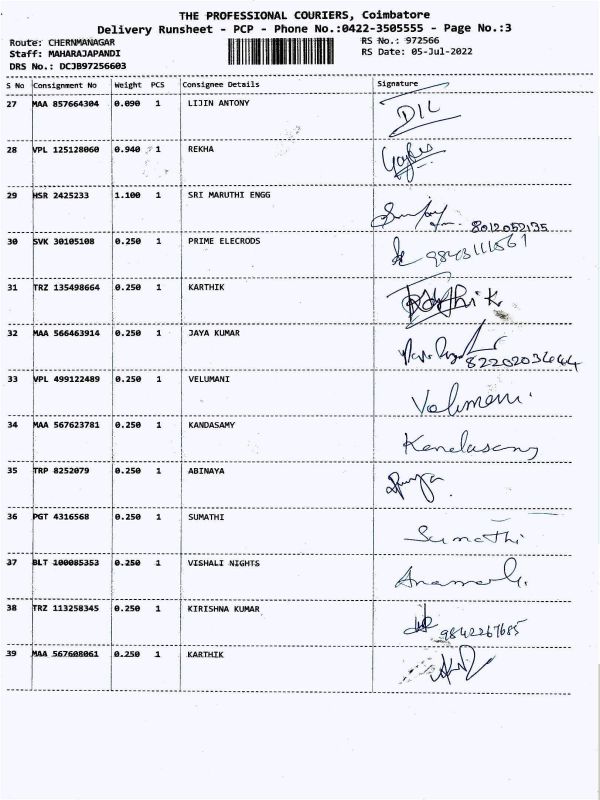 THE PROFESSIONAL COURIERS, Coimbatore
Delivery Runsheet - PCP - Phone No.:0422-3505555 - Page No.:3
Route: CHERNMANAGAR RS No.: 972566
Staff: MAHARAJAPANDI RS Date: 05-Jul-2022
DRS No.: DCJB97256603
S No Consignment No Weight PCS Consignee Details Signature
27 MAA 857664304 0.090 1 LIJIN ANTONY
28 VPL 125128060 0.940 1 REKHA
29 HSR 2425233 1.100 1 SRI MARUTHI ENGG
8012052135
30 SVK 30105108 0.250 1 PRIME ELECRODS 9843111561
31 TRZ 135498664 0.250 1 KARTHIK Karthik
32 MAA 566463914 0.250 1 JAYA KUMAR
33 VPL 499122489 0.250 1 VELUMANI Velumani
34 MAA 567623781 0.250 1 KANDASAMY Kandasamy
35 TRP 8252079 0.250 1 ABINAYA
36 PGT 4316568 0.250 1 SUMATHI Sumathi
37 BLT 100085353 0.250 1 VISHALI NIGHTS
38 TRZ 113258345 0.250 1 KIRISHNA KUMAR
9842267685
39 MAA 567608061 0.250 1 KARTHIK